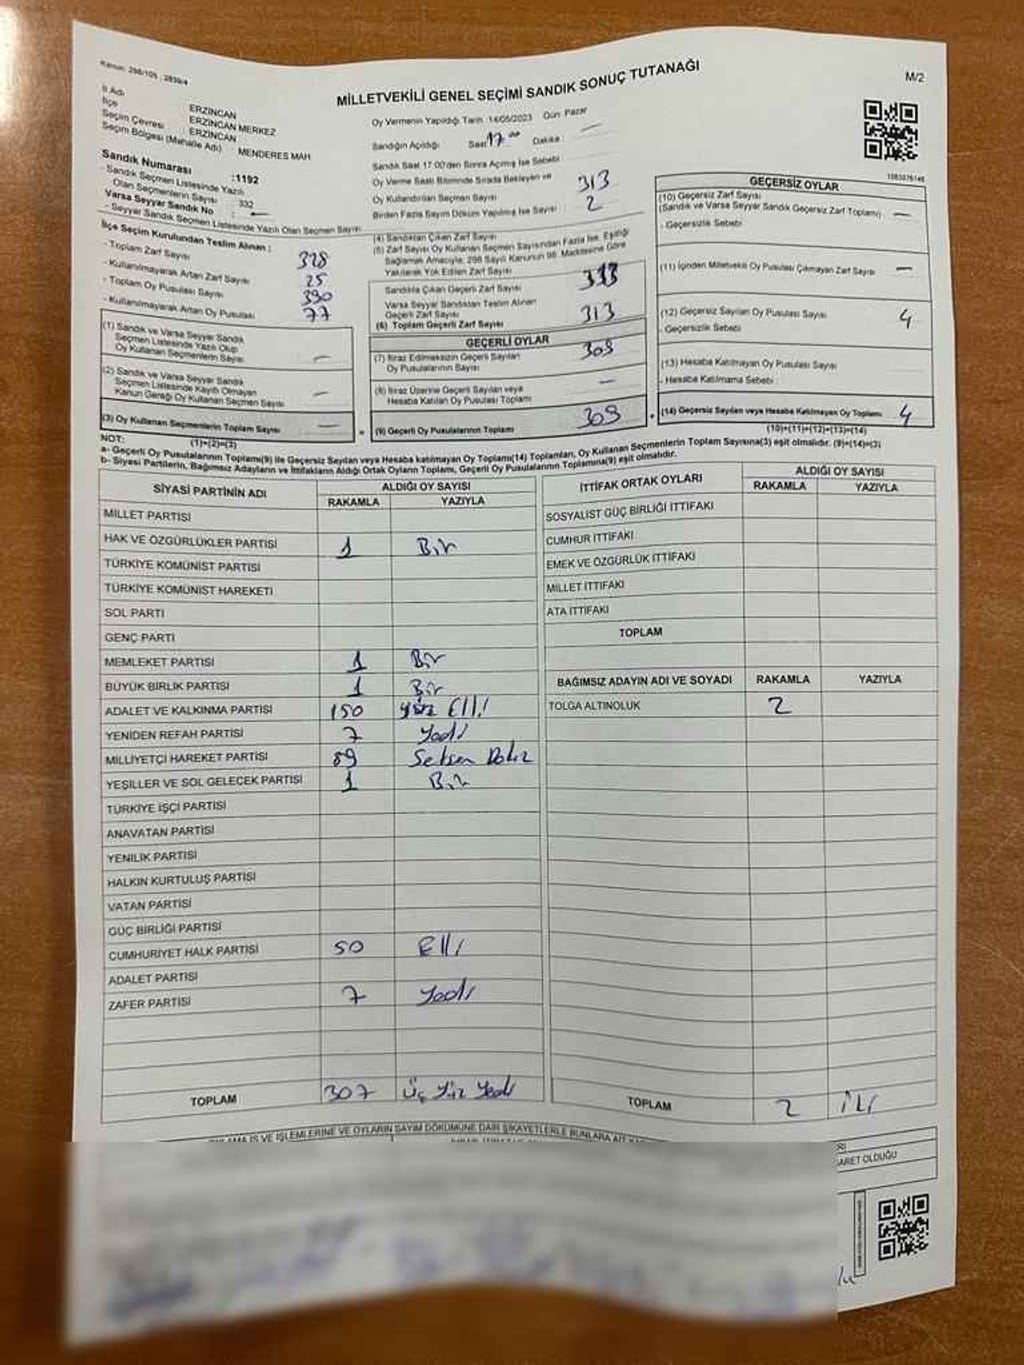 Kanun: 298/105 , 2839/4
MİLLETVEKİLİ GENEL SEÇİMİ SANDIK SONUÇ TUTANAĞI
M/2
İl Adı : ERZİNCAN
İlçe : ERZİNCAN MERKEZ
Seçim Çevresi : ERZİNCAN
Seçim Bölgesi (Mahalle Adı) : MENDERES MAH
Sandık Numarası :1192
- Sandık Seçmen Listesinde Yazılı
Olan Seçmenlerin Sayısı : 332
Varsa Seyyar Sandık No : —
- Seyyar Sandık Seçmen Listesinde Yazılı Olan Seçmen Sayısı
İlçe Seçim Kurulundan Teslim Alınan :
- Toplam Zarf Sayısı 328
- Kullanılmayarak Artan Zarf Sayısı 25
- Toplam Oy Pusulası Sayısı 390
- Kullanılmayarak Artan Oy Pusulası 77
(1) Sandık ve Varsa Seyyar Sandık
Seçmen Listesinde Yazılı Olup
Oy Kullanan Seçmenlerin Sayısı —
(2) Sandık ve Varsa Seyyar Sandık
Seçmen Listesinde Kayıtlı Olmayan
Kanun Gereği Oy Kullanan Seçmen Sayısı —
(3) Oy Kullanan Seçmenlerin Toplam Sayısı —
(1)+(2)=(3)
Oy Vermenin Yapıldığı Tarih :14/05/2023 Gün :Pazar
Sandığın Açıldığı Saat 17 00 Dakika : —
Sandık Saat 17:00'den Sonra Açılmış İse Sebebi
Oy Verme Saati Bitiminde Sırada Bekleyen ve
Oy Kullandırılan Seçmen Sayısı 313
Birden Fazla Sayım Döküm Yapılmış İse Sayısı 2
(4) Sandıktan Çıkan Zarf Sayısı
(5) Zarf Sayısı Oy Kullanan Seçmen Sayısından Fazla İse, Eşitliği
Sağlamak Amacıyla; 298 Sayılı Kanunun 98. Maddesine Göre
Yakılarak Yok Edilen Zarf Sayısı
Sandıkta Çıkan Geçerli Zarf Sayısı 313
Varsa Seyyar Sandıktan Teslim Alınan
Geçerli Zarf Sayısı
(6) Toplam Geçerli Zarf Sayısı 313
GEÇERLİ OYLAR
(7) İtiraz Edilmeksizin Geçerli Sayılan
Oy Pusulalarının Sayısı 309
(8) İtiraz Üzerine Geçerli Sayılan veya
Hesaba Katılan Oy Pusulası Toplamı —
(9) Geçerli Oy Pusulalarının Toplamı 309
1083076148
GEÇERSİZ OYLAR
(10) Geçersiz Zarf Sayısı
(Sandık ve Varsa Seyyar Sandık Geçersiz Zarf Toplamı) —
- Geçersizlik Sebebi
(11) İçinden Milletvekili Oy Pusulası Çıkmayan Zarf Sayısı —
(12) Geçersiz Sayılan Oy Pusulası Sayısı 4
- Geçersizlik Sebebi
(13) Hesaba Katılmayan Oy Pusulası Sayısı
- Hesaba Katılmama Sebebi
(14) Geçersiz Sayılan veya Hesaba Katılmayan Oy Toplamı 4
(10)+(11)+(12)+(13)=(14)
NOT:
a- Geçerli Oy Pusulalarının Toplamı(9) ile Geçersiz Sayılan veya Hesaba katılmayan Oy Toplamı(14) Toplamları, Oy Kullanan Seçmenlerin Toplam Sayısına(3) eşit olmalıdır. (9)+(14)=(3)
b- Siyasi Partilerin, Bağımsız Adayların ve İttifakların Aldığı Ortak Oyların Toplamı, Geçerli Oy Pusulalarının Toplamına(9) eşit olmalıdır.
SİYASİ PARTİNİN ADI
ALDIĞI OY SAYISI
RAKAMLA YAZIYLA
MİLLET PARTİSİ
HAK VE ÖZGÜRLÜKLER PARTİSİ 1 Bir
TÜRKİYE KOMÜNİST PARTİSİ
TÜRKİYE KOMÜNİST HAREKETİ
SOL PARTİ
GENÇ PARTİ
MEMLEKET PARTİSİ 1 Bir
BÜYÜK BİRLİK PARTİSİ 1 Bir
ADALET VE KALKINMA PARTİSİ 150 Yüz Elli
YENİDEN REFAH PARTİSİ 7 Yedi
MİLLİYETÇİ HAREKET PARTİSİ 89 Seksen Dokuz
YEŞİLLER VE SOL GELECEK PARTİSİ 1 Bir
TÜRKİYE İŞÇİ PARTİSİ
ANAVATAN PARTİSİ
YENİLİK PARTİSİ
HALKIN KURTULUŞ PARTİSİ
VATAN PARTİSİ
GÜÇ BİRLİĞİ PARTİSİ
CUMHURİYET HALK PARTİSİ 50 Elli
ADALET PARTİSİ
ZAFER PARTİSİ 7 Yedi
TOPLAM 307 Üç Yüz Yedi
İTTİFAK ORTAK OYLARI
ALDIĞI OY SAYISI
RAKAMLA YAZIYLA
SOSYALİST GÜÇ BİRLİĞİ İTTİFAKI
CUMHUR İTTİFAKI
EMEK VE ÖZGÜRLÜK İTTİFAKI
MİLLET İTTİFAKI
ATA İTTİFAKI
TOPLAM
BAĞIMSIZ ADAYIN ADI VE SOYADI RAKAMLA YAZIYLA
TOLGA ALTINOLUK 2
TOPLAM 2 iki
İŞ VE İŞLEMLERİNE VE OYLARIN SAYIM DÖKÜMÜNE DAİR ŞİKAYETLERLE BUNLARA
ARET OLDUĞU